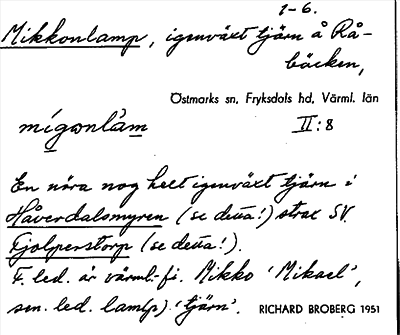 1-6.
Mikkonlamp, igenväxt tjärn å Rå-
bäcken,
Östmarks sn, Fryksdals hd, Värml. län
mígǝnlàm II:8
En nära nog helt igenväxt tjärn i
Håverdalsmyren (se detta!) strax SV.
Fjolperstorp (se detta!).
F. led. är värml.-fi. Mikko 'Mikael',
sen. led. lam(p) 'tjärn'. RICHARD BROBERG 1951